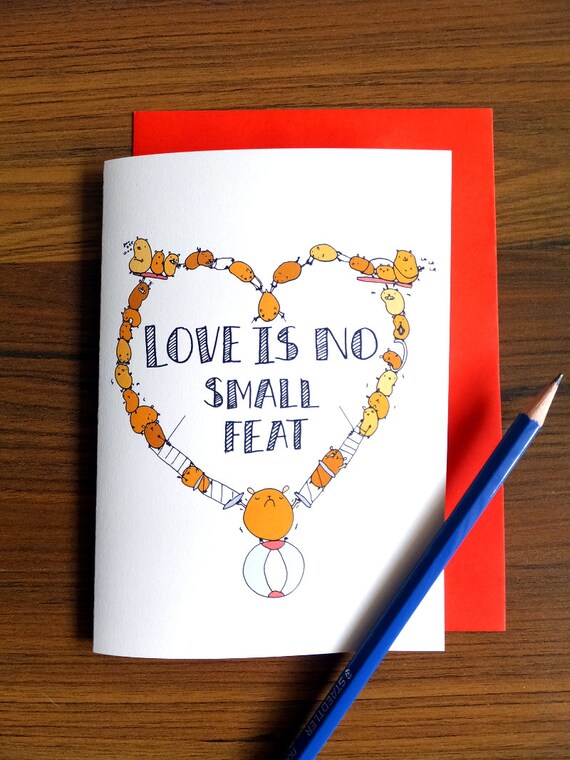 LOVE IS NO
SMALL
FEAT
STAEDTLER